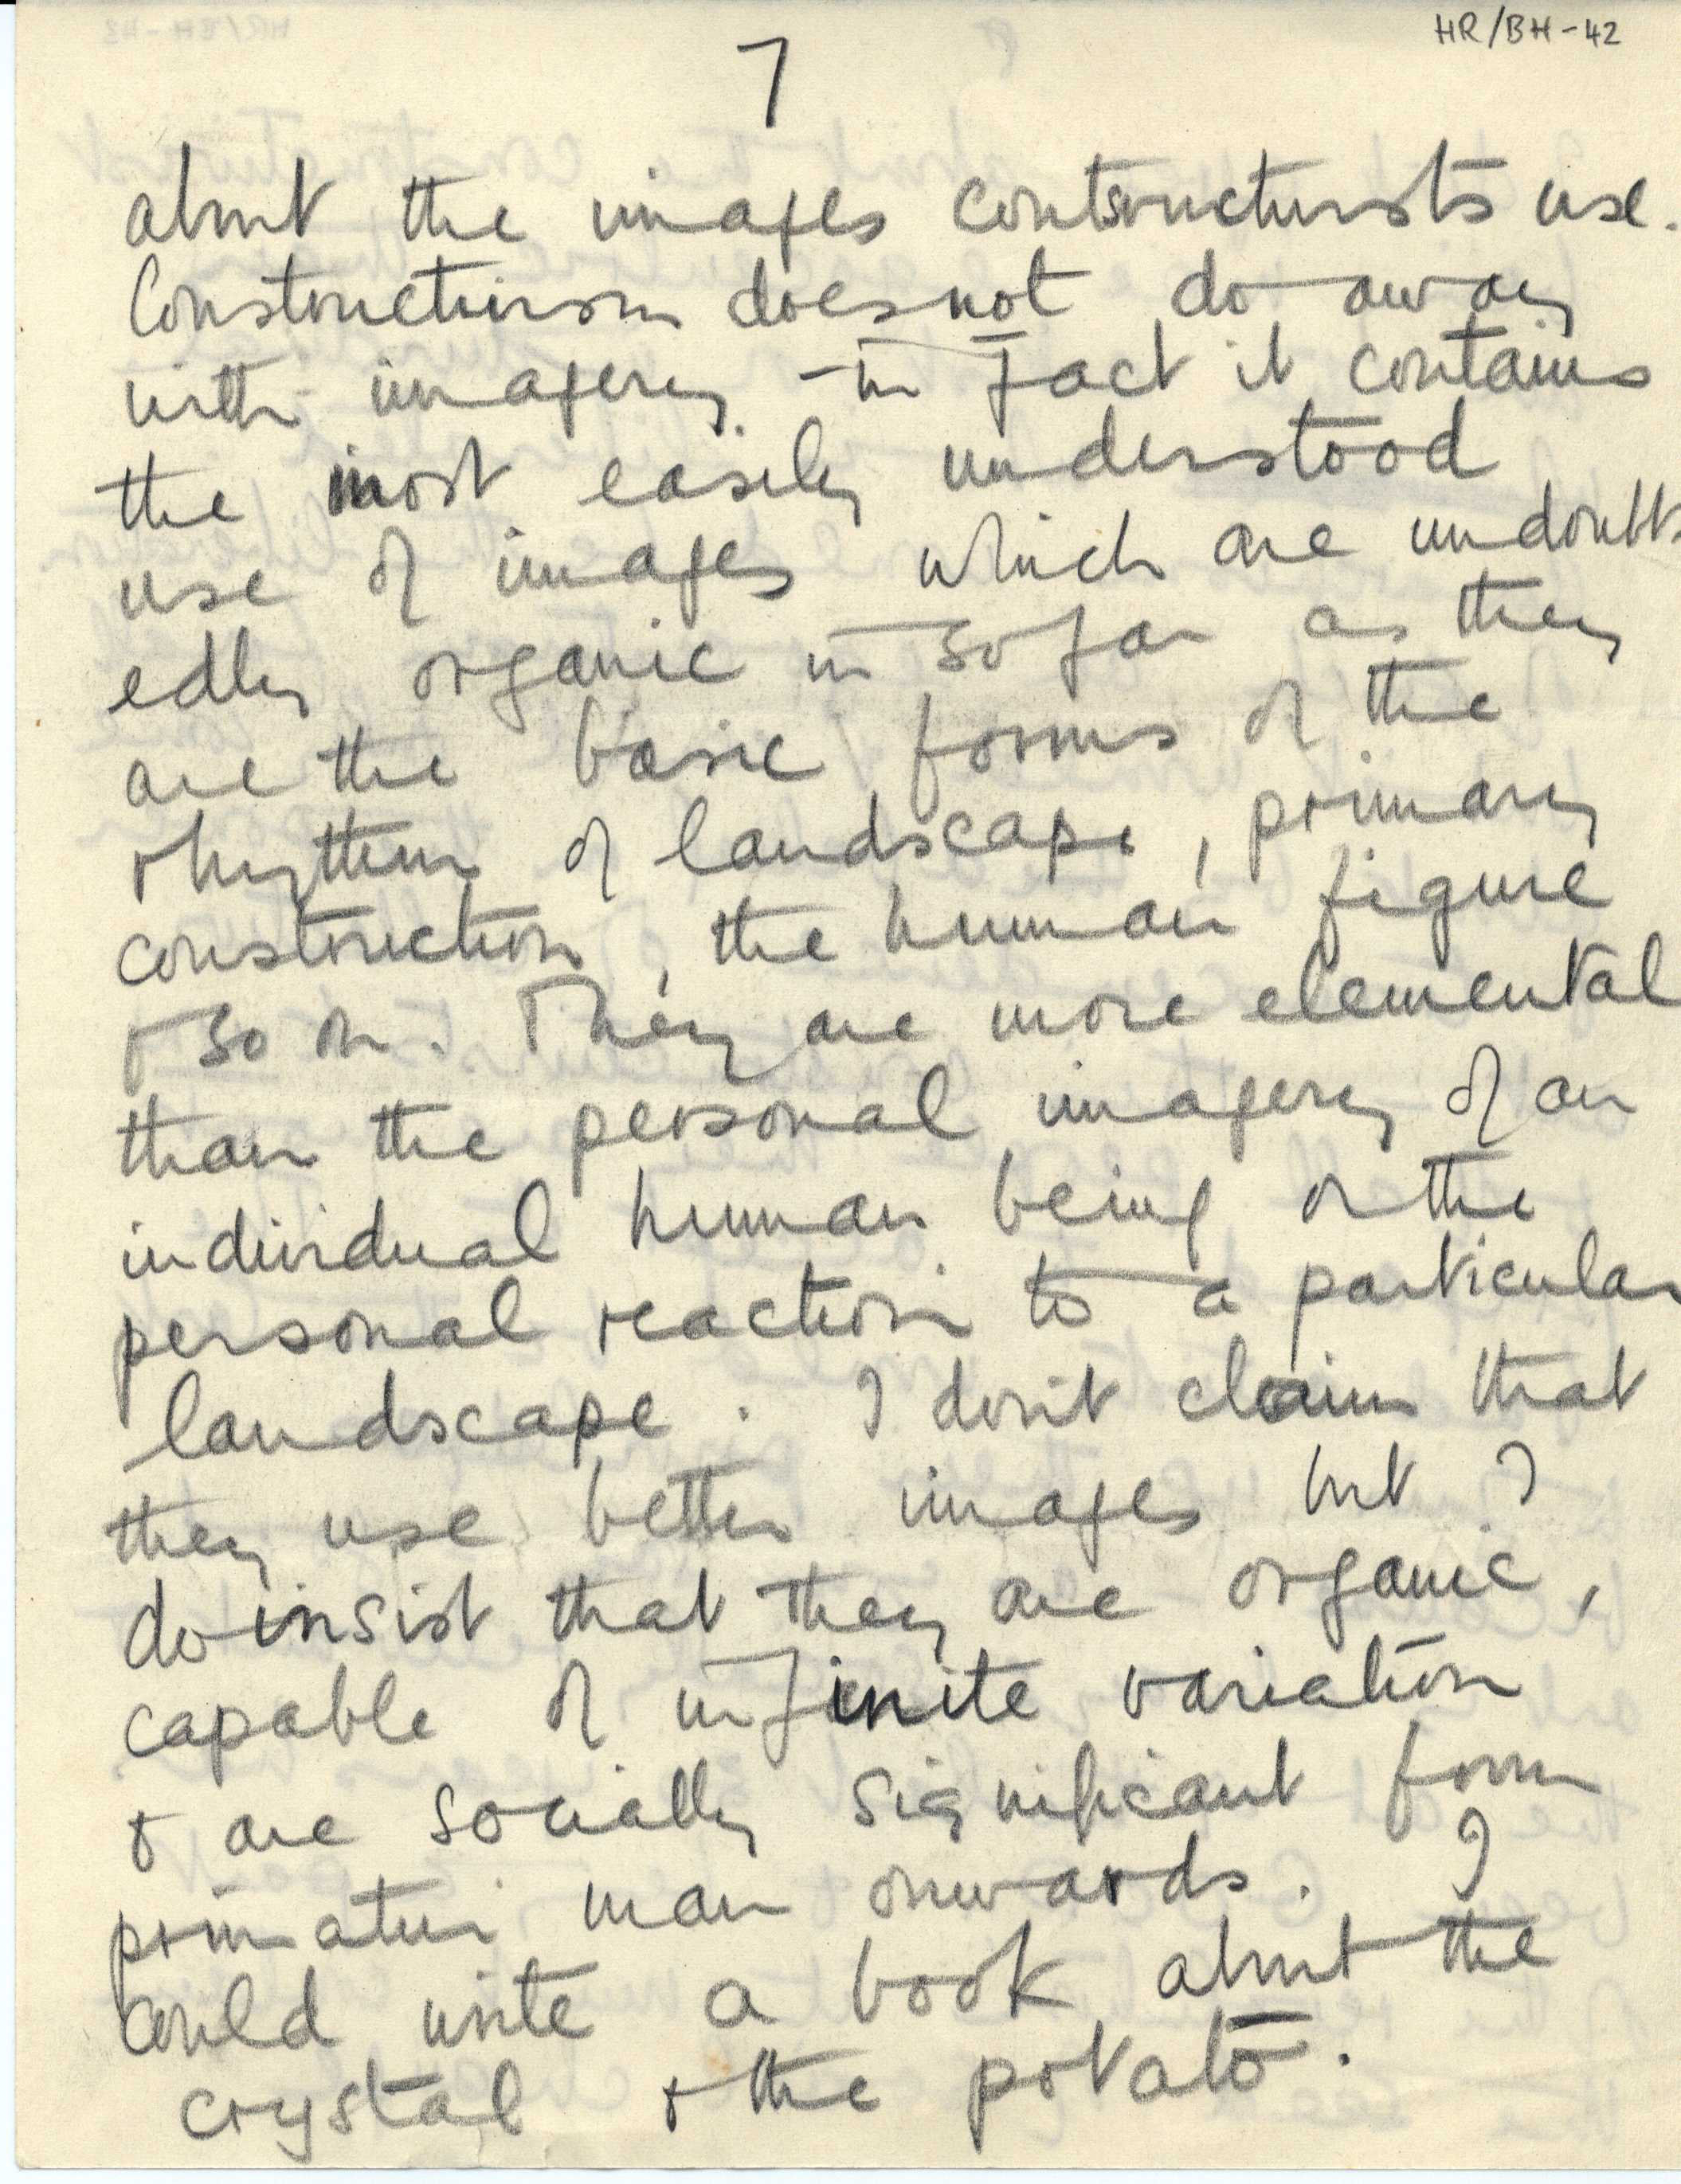 HR/BH-42
7
about the images constructivists use.
Constructivism does not do away
with imagery - in fact it contains
the most easily understood
use of images which are undoubt
edly organic in so far as they
are the basic forms of the
rhythm of landscape, primary
construction, the human figure
& so on. They are more elemental
than the personal imagery of an
individual human being or the
personal reaction to a particular
landscape. I don't claim that
they use better images but I
do insist that they are organic,
capable of infinite variation
& are socially significant from
primative man onwards. I
could write a book about the
crystal & the potato.